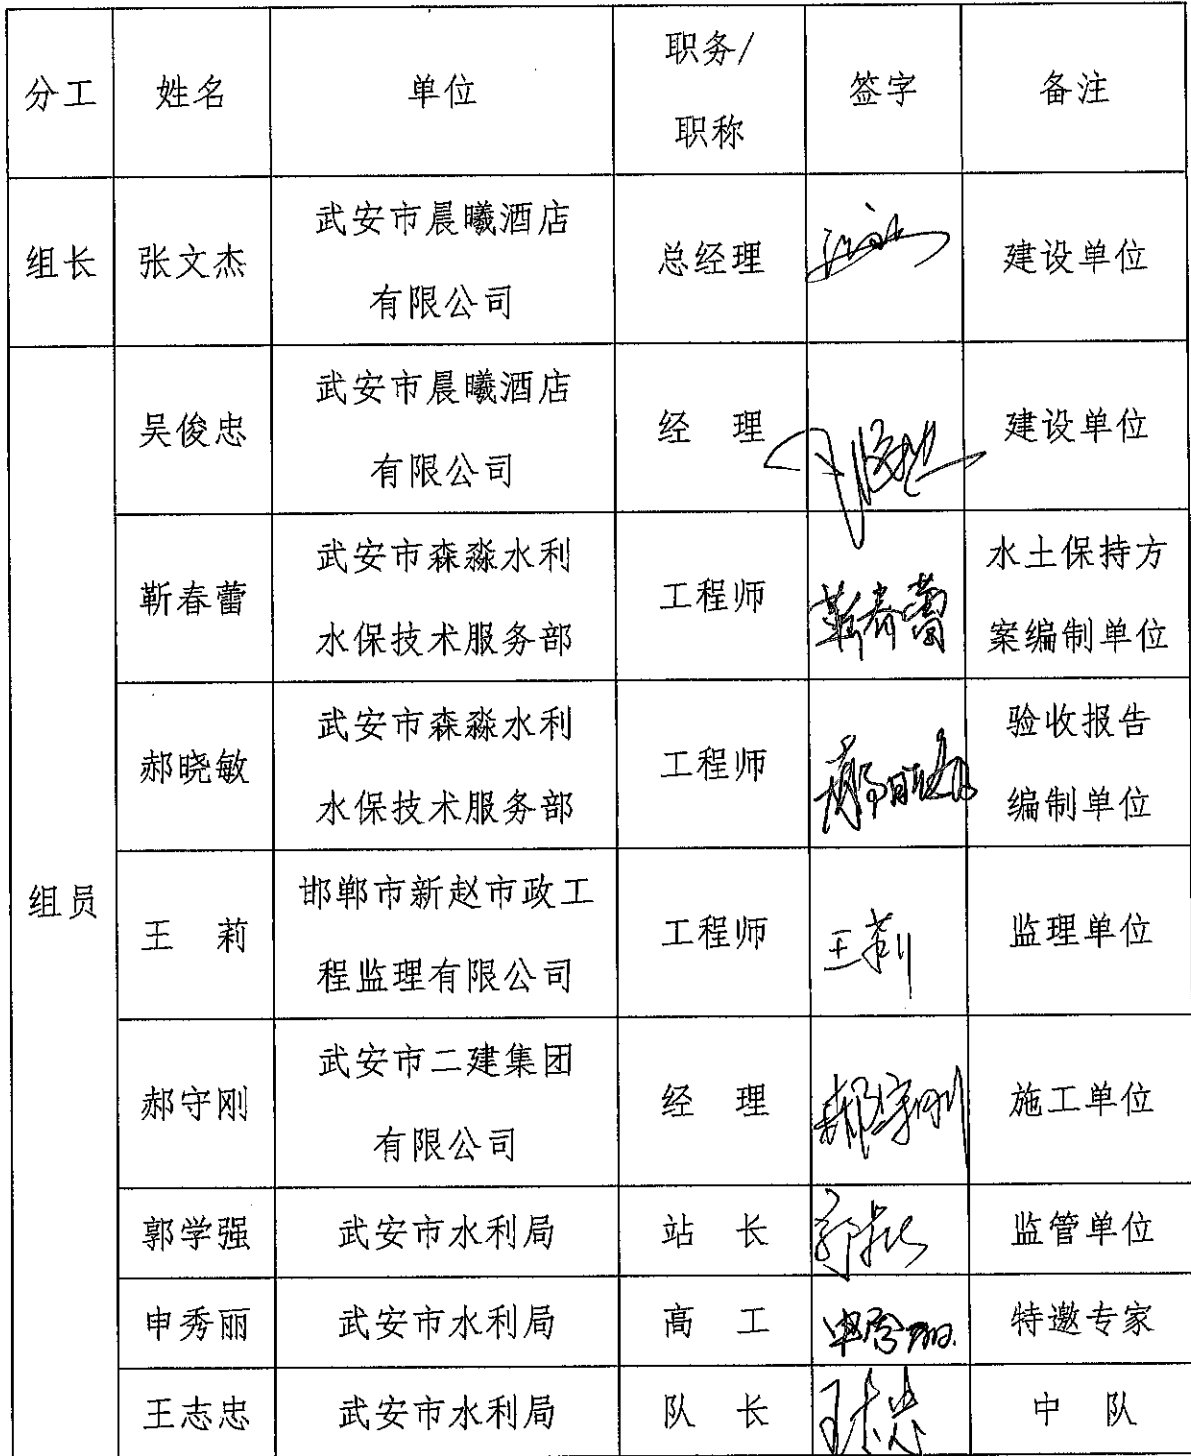 分工 姓名 单位 职务/职称 签字 备注
组长 张文杰 武安市晨曦酒店有限公司 总经理 建设单位
组员
吴俊忠 武安市晨曦酒店有限公司 经 理 吴俊忠 建设单位
靳春蕾 武安市森淼水利水保技术服务部 工程师 靳春蕾 水土保持方案编制单位
郝晓敏 武安市森淼水利水保技术服务部 工程师 郝晓敏 验收报告编制单位
王 莉 邯郸市新赵市政工程监理有限公司 工程师 王莉 监理单位
郝守刚 武安市二建集团有限公司 经 理 郝守刚 施工单位
郭学强 武安市水利局 站 长 监管单位
申秀丽 武安市水利局 高 工 申秀丽 特邀专家
王志忠 武安市水利局 队 长 王志忠 中 队